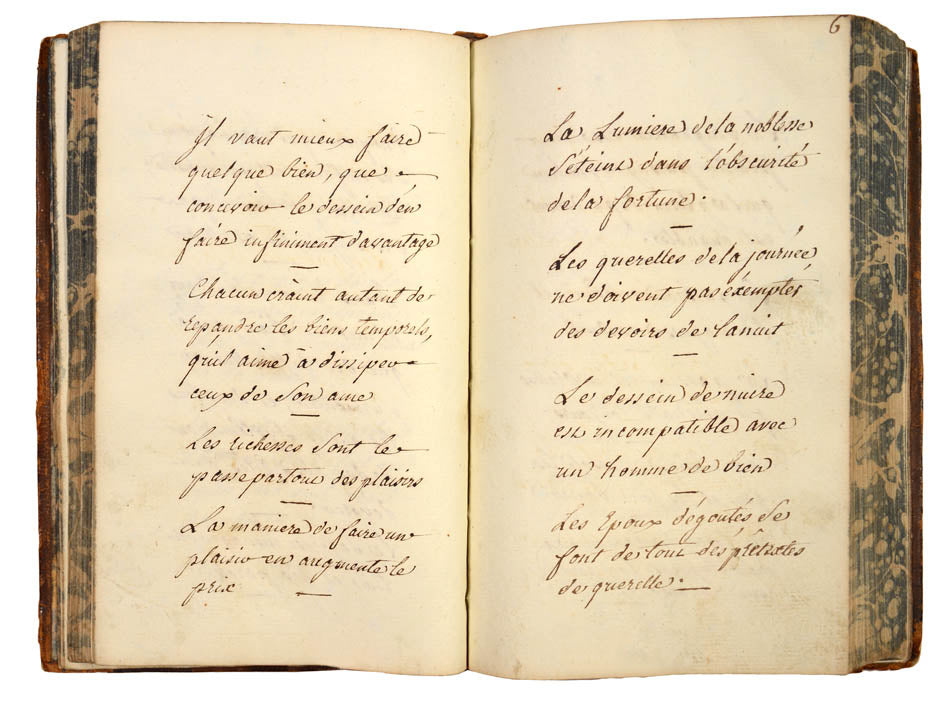 Il vaut mieux faire
quelque bien, que
concevoir le dessein d'en
faire infiniment davantage
Chacun craint autant de
repandre les biens temporels,
qu'il aime à dissiper
ceux de Son ame
Les richesses Sont le
passepartout des plaisirs
La maniere de faire un
plaisir en augmente le
prix
6
La Lumiere de la noblesse
S'éteint dans l'obscurité
de la fortune.
Les querelles de la journée
ne doivent pas éxempter
des devoirs de la nuit
Le dessein de nuire
est incompatible avec
un homme de bien
Les Epoux dégoutés Se
font de tout des prétextes
de querelle.